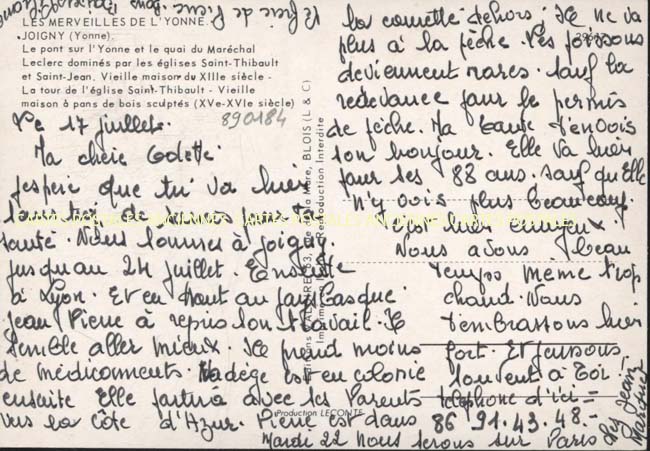 LES MERVEILLES DE L'YONNE.
JOIGNY (Yonne).
Le pont sur l'Yonne et le quai du Maréchal
Leclerc dominés par les églises Saint-Thibault
et Saint-Jean. Vieille maison du XIIIe siècle -
La tour de l'église Saint-Thibault - Vieille
maison à pans de bois sculptés (XVe-XVIe siècle)
890184
Le 17 juillet.
Ma chère Odette
J'espère que tu va bien
santé. Nous sommes à Joigny.
jusqu'au 24 juillet. Ensuite
à Lyon. Et en Aout au pays basque
Jean Pierre à repris son travail. Il
semble aller mieux. Il prend moins
de médicaments. Nadège est en colonie
ensuite Elle partira avec ses Parents
vers la côte d'Azur. Pierre est dans
la comette dehors. Il ne va
plus à la pêche. Les poissons
deviennent rares. Sauf la
redevance pour le permis
de pêche. Ma tante t'envois
son bonjour. Elle va bien
pour ses 88 ans. sauf qu'Elle
n'y vois plus beaucoup.
C'est bien ennuyeux
Nous avons beau
temps même trop
chaud. Nous
t'embrassons bien
fort. Et pensons
souvent à Toi.
telephone d'ici =
86 91.43.48.-
Mardi 22 nous serons sur Paris
Production LECONTE
BLOIS (L & C)
Reproduction Interdite